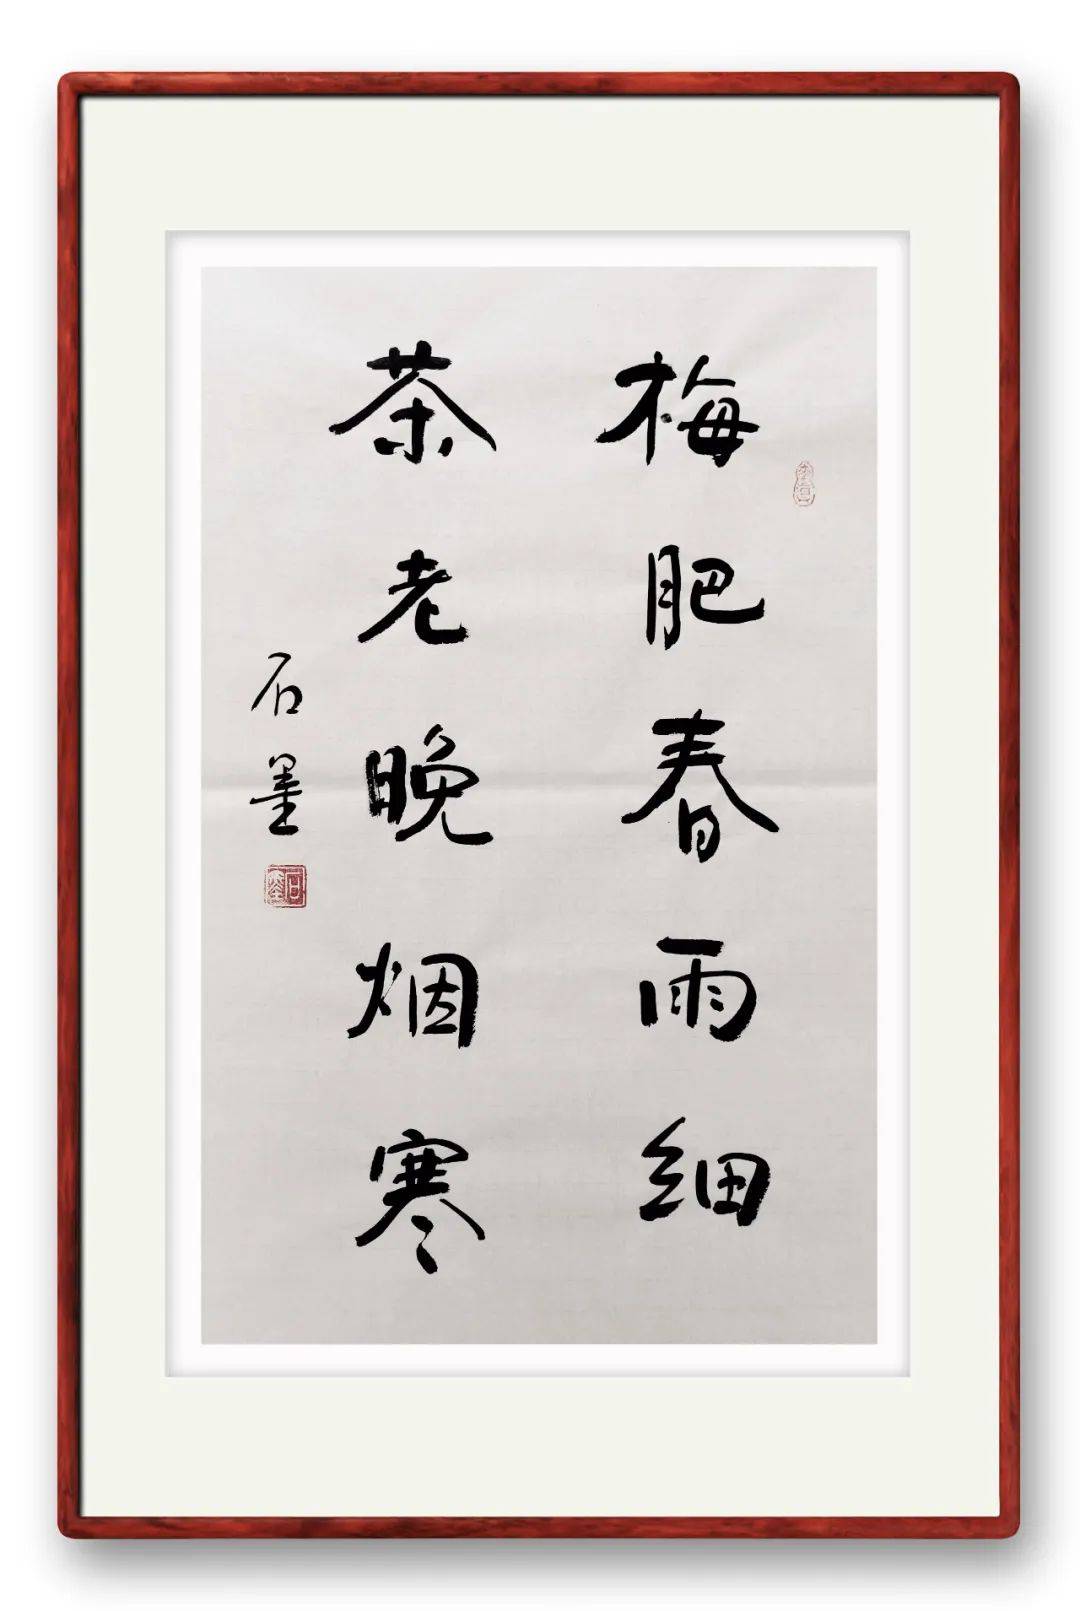 梅肥春雨细
茶老晚烟寒
石墨